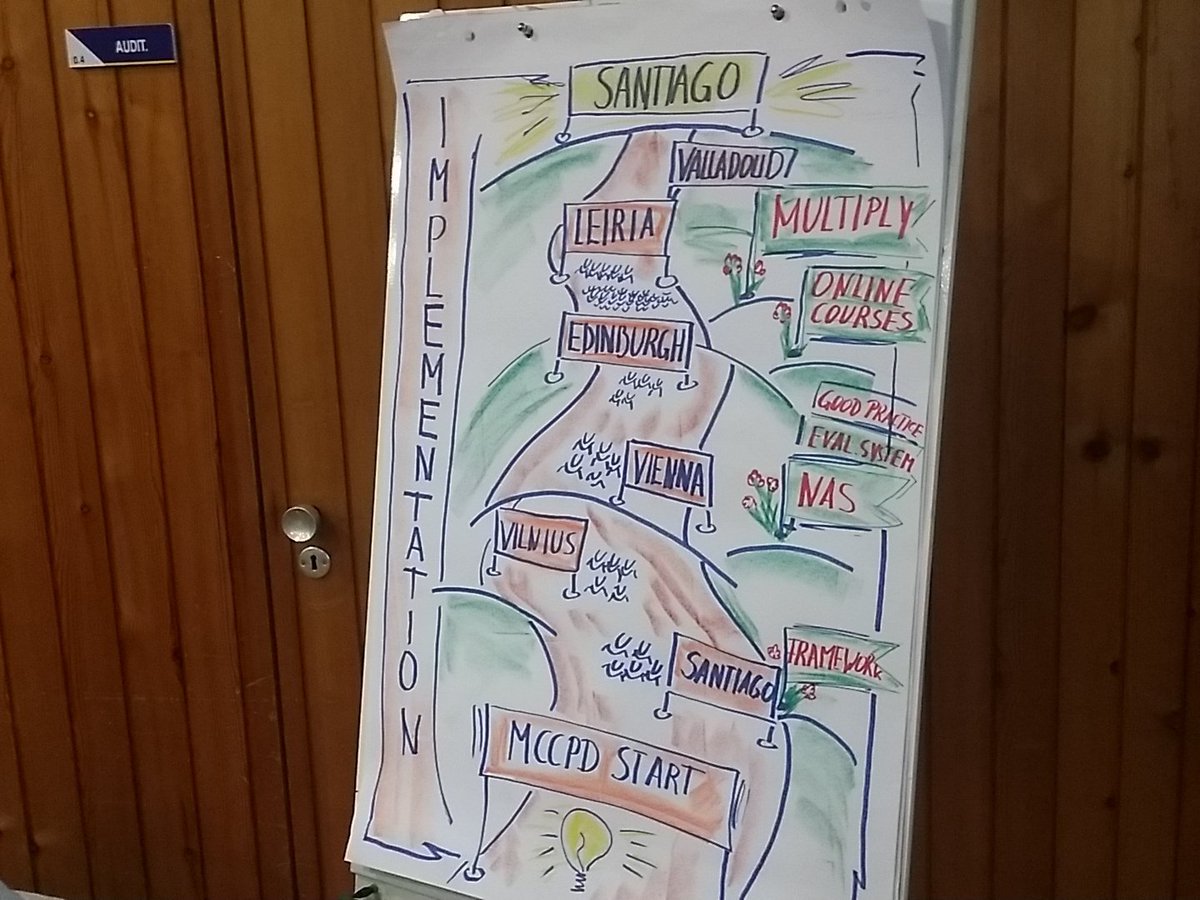 AUDIT.
0.4
SANTIAGO
VALLADOLID
LEIRIA
MULTIPLY
ONLINE
COURSES
EDINBURGH
GOOD PRACTICE
EVAL. SYSTEM
VIENNA
NAS
VILNIUS
FRAMEWORK
SANTIAGO
MCCPD START
IMPLEMENTATION